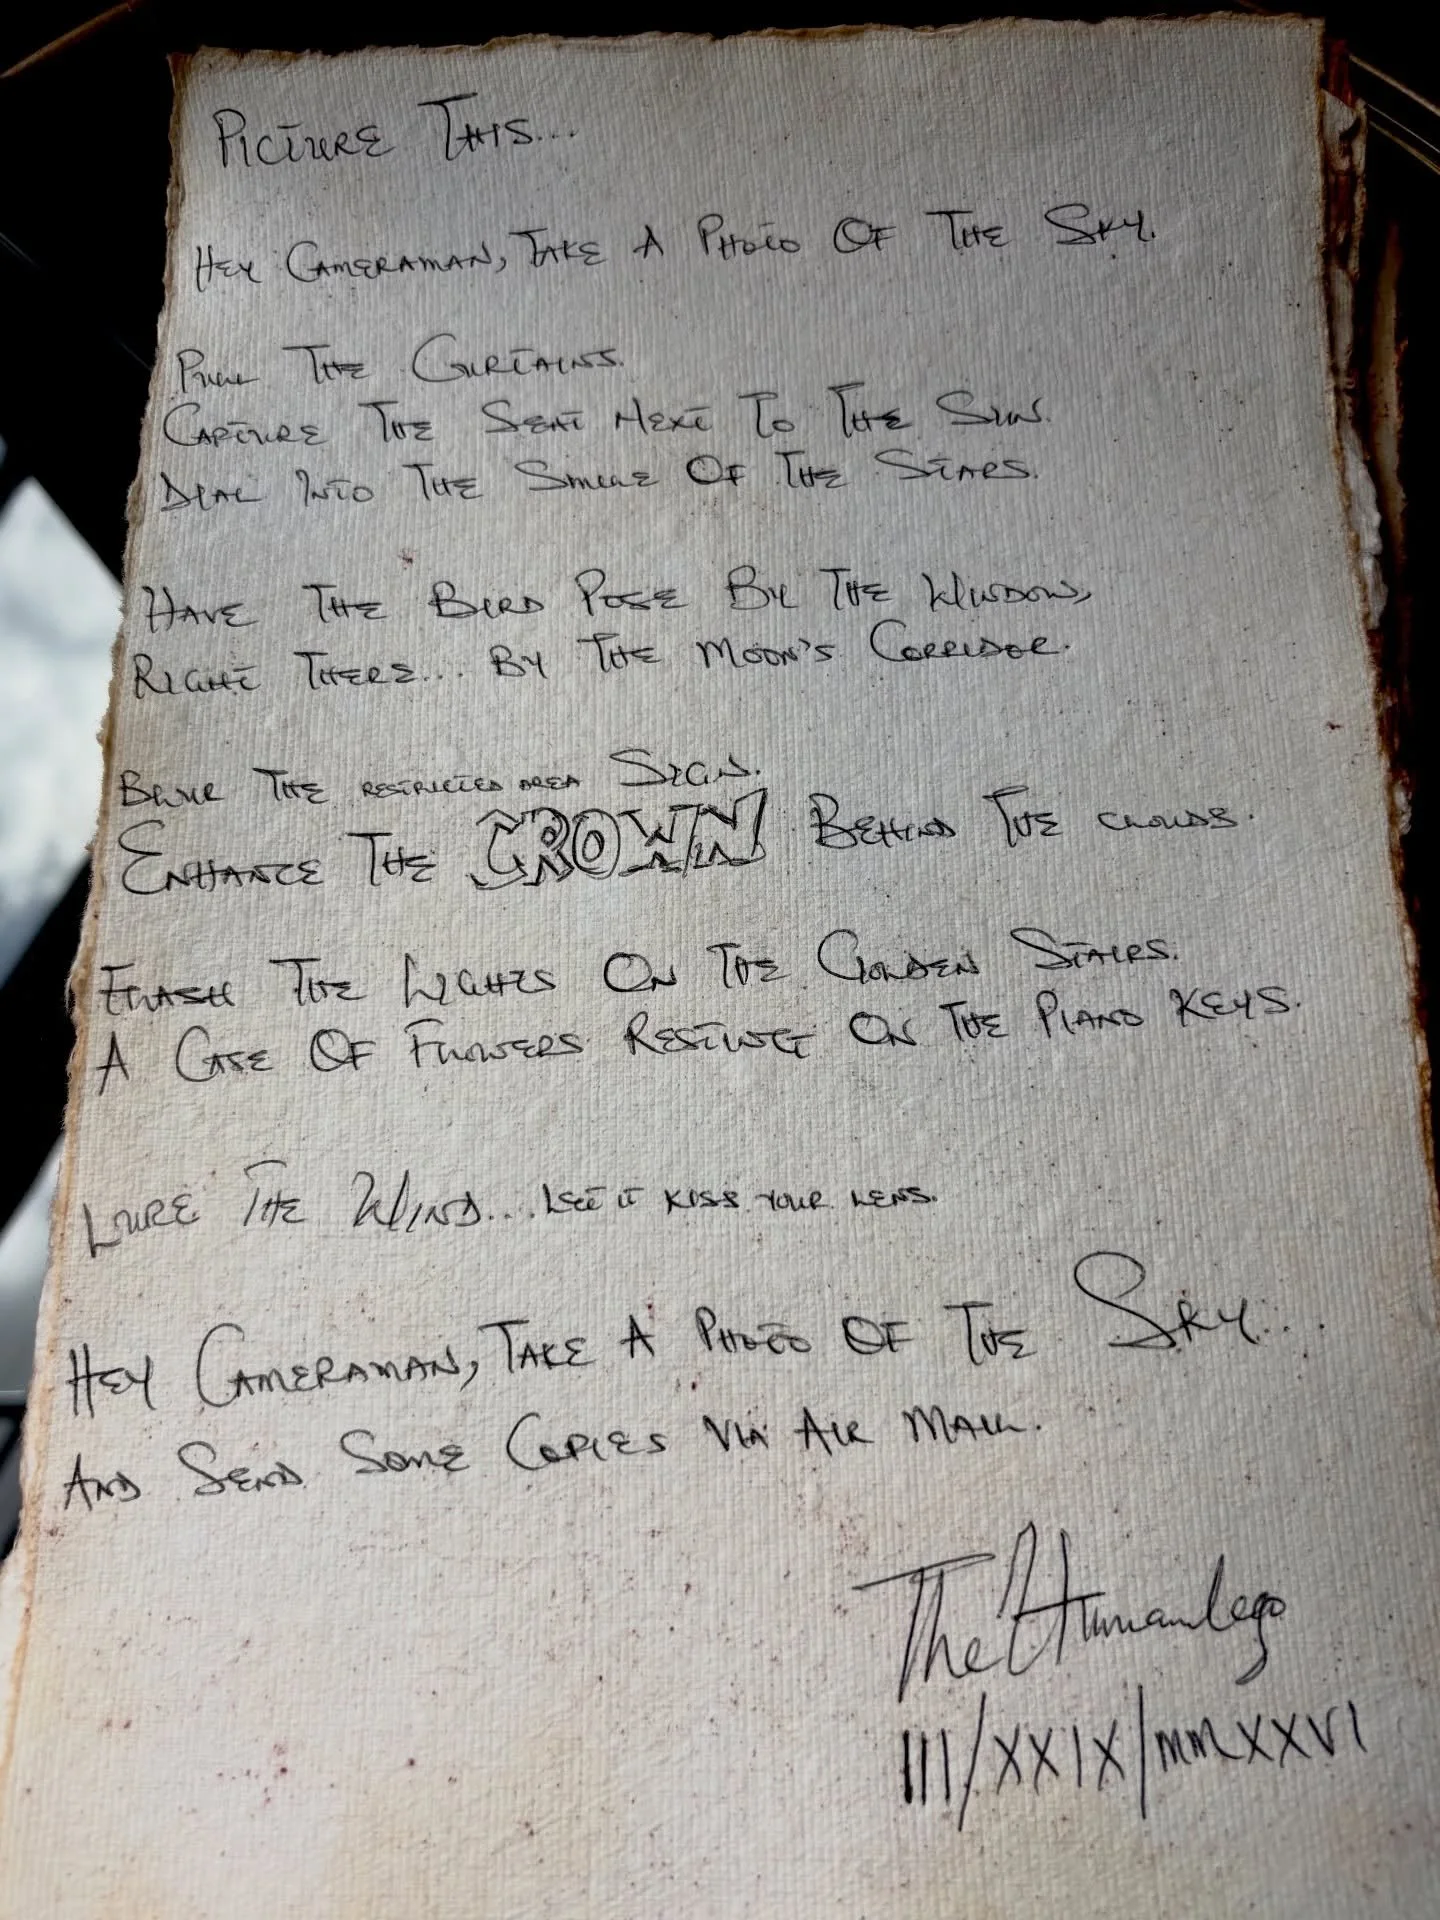 Picture This...
Hey Cameraman, Take A Photo Of The Sky.
Pull The Curtains.
Capture The Seat Next To The Sun.
Dial Into The Smile Of The Stars.
Have The Bird Pose By The Window,
Right There... By The Moon's Corridor.
Blur The restricted area Sign.
Enhance The CROWN Behind The clouds.
Flash The Lights On The Golden Stairs.
A Case Of Flowers Resting On The Piano Keys.
Lure The Wind... let it kiss your lens.
Hey Cameraman, Take A Photo Of The Sky...
And Send Some Copies Via Air Mail.
The Humanlego
III/XXIX/MMXXVI